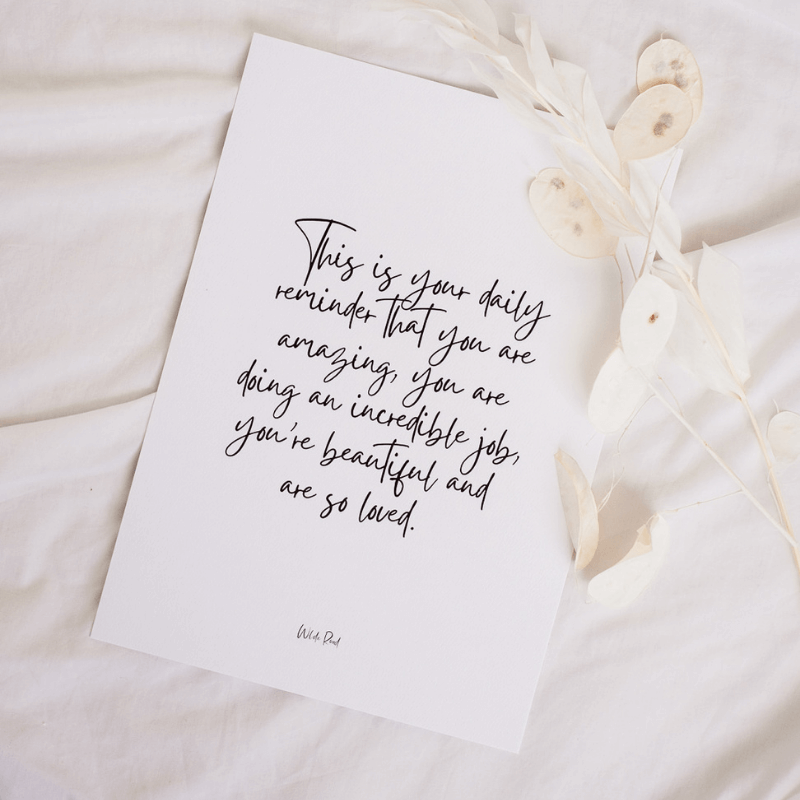 This is your daily
reminder that you are
amazing, you are
doing an incredible job,
you're beautiful and
are so loved.